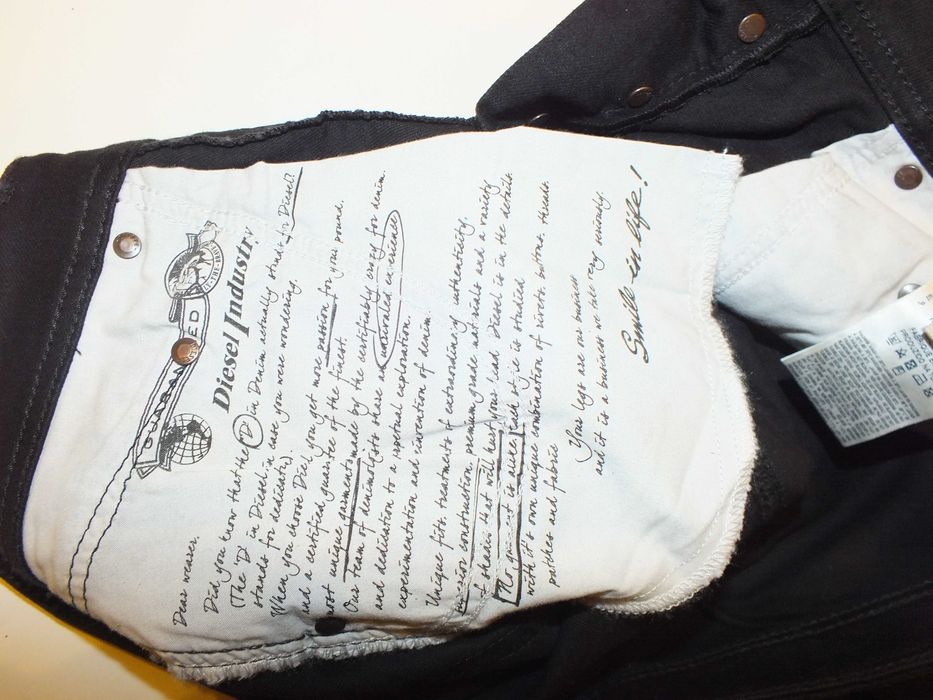 Diesel Industry
Dear wearer.
Did you know that the 'D' in Denim actually stands for Diesel?
(The 'D' in Diesel, in case you were wondering,
stands for dedicated).
When you choose Diesel you get more passion for your pound.
and a certified guarantee of the finest.
most unique garments made by the certifiably crazy for denim.
Our team of denimologists share an unrivaled exuberance
and dedication to a perpetual exploration.
experimentation and invention of denim
Unique fits, treatments of extraordinary authenticity.
superior construction, premium grade materials and a variety
of shades that will have your head. Diesel is in the details
No garment is alike. Each style is studied
with it's own unique combination of rivets, buttons, threads
patches and fabrics
Your legs are our business
and it is a business we take very seriously.
Smile in life!